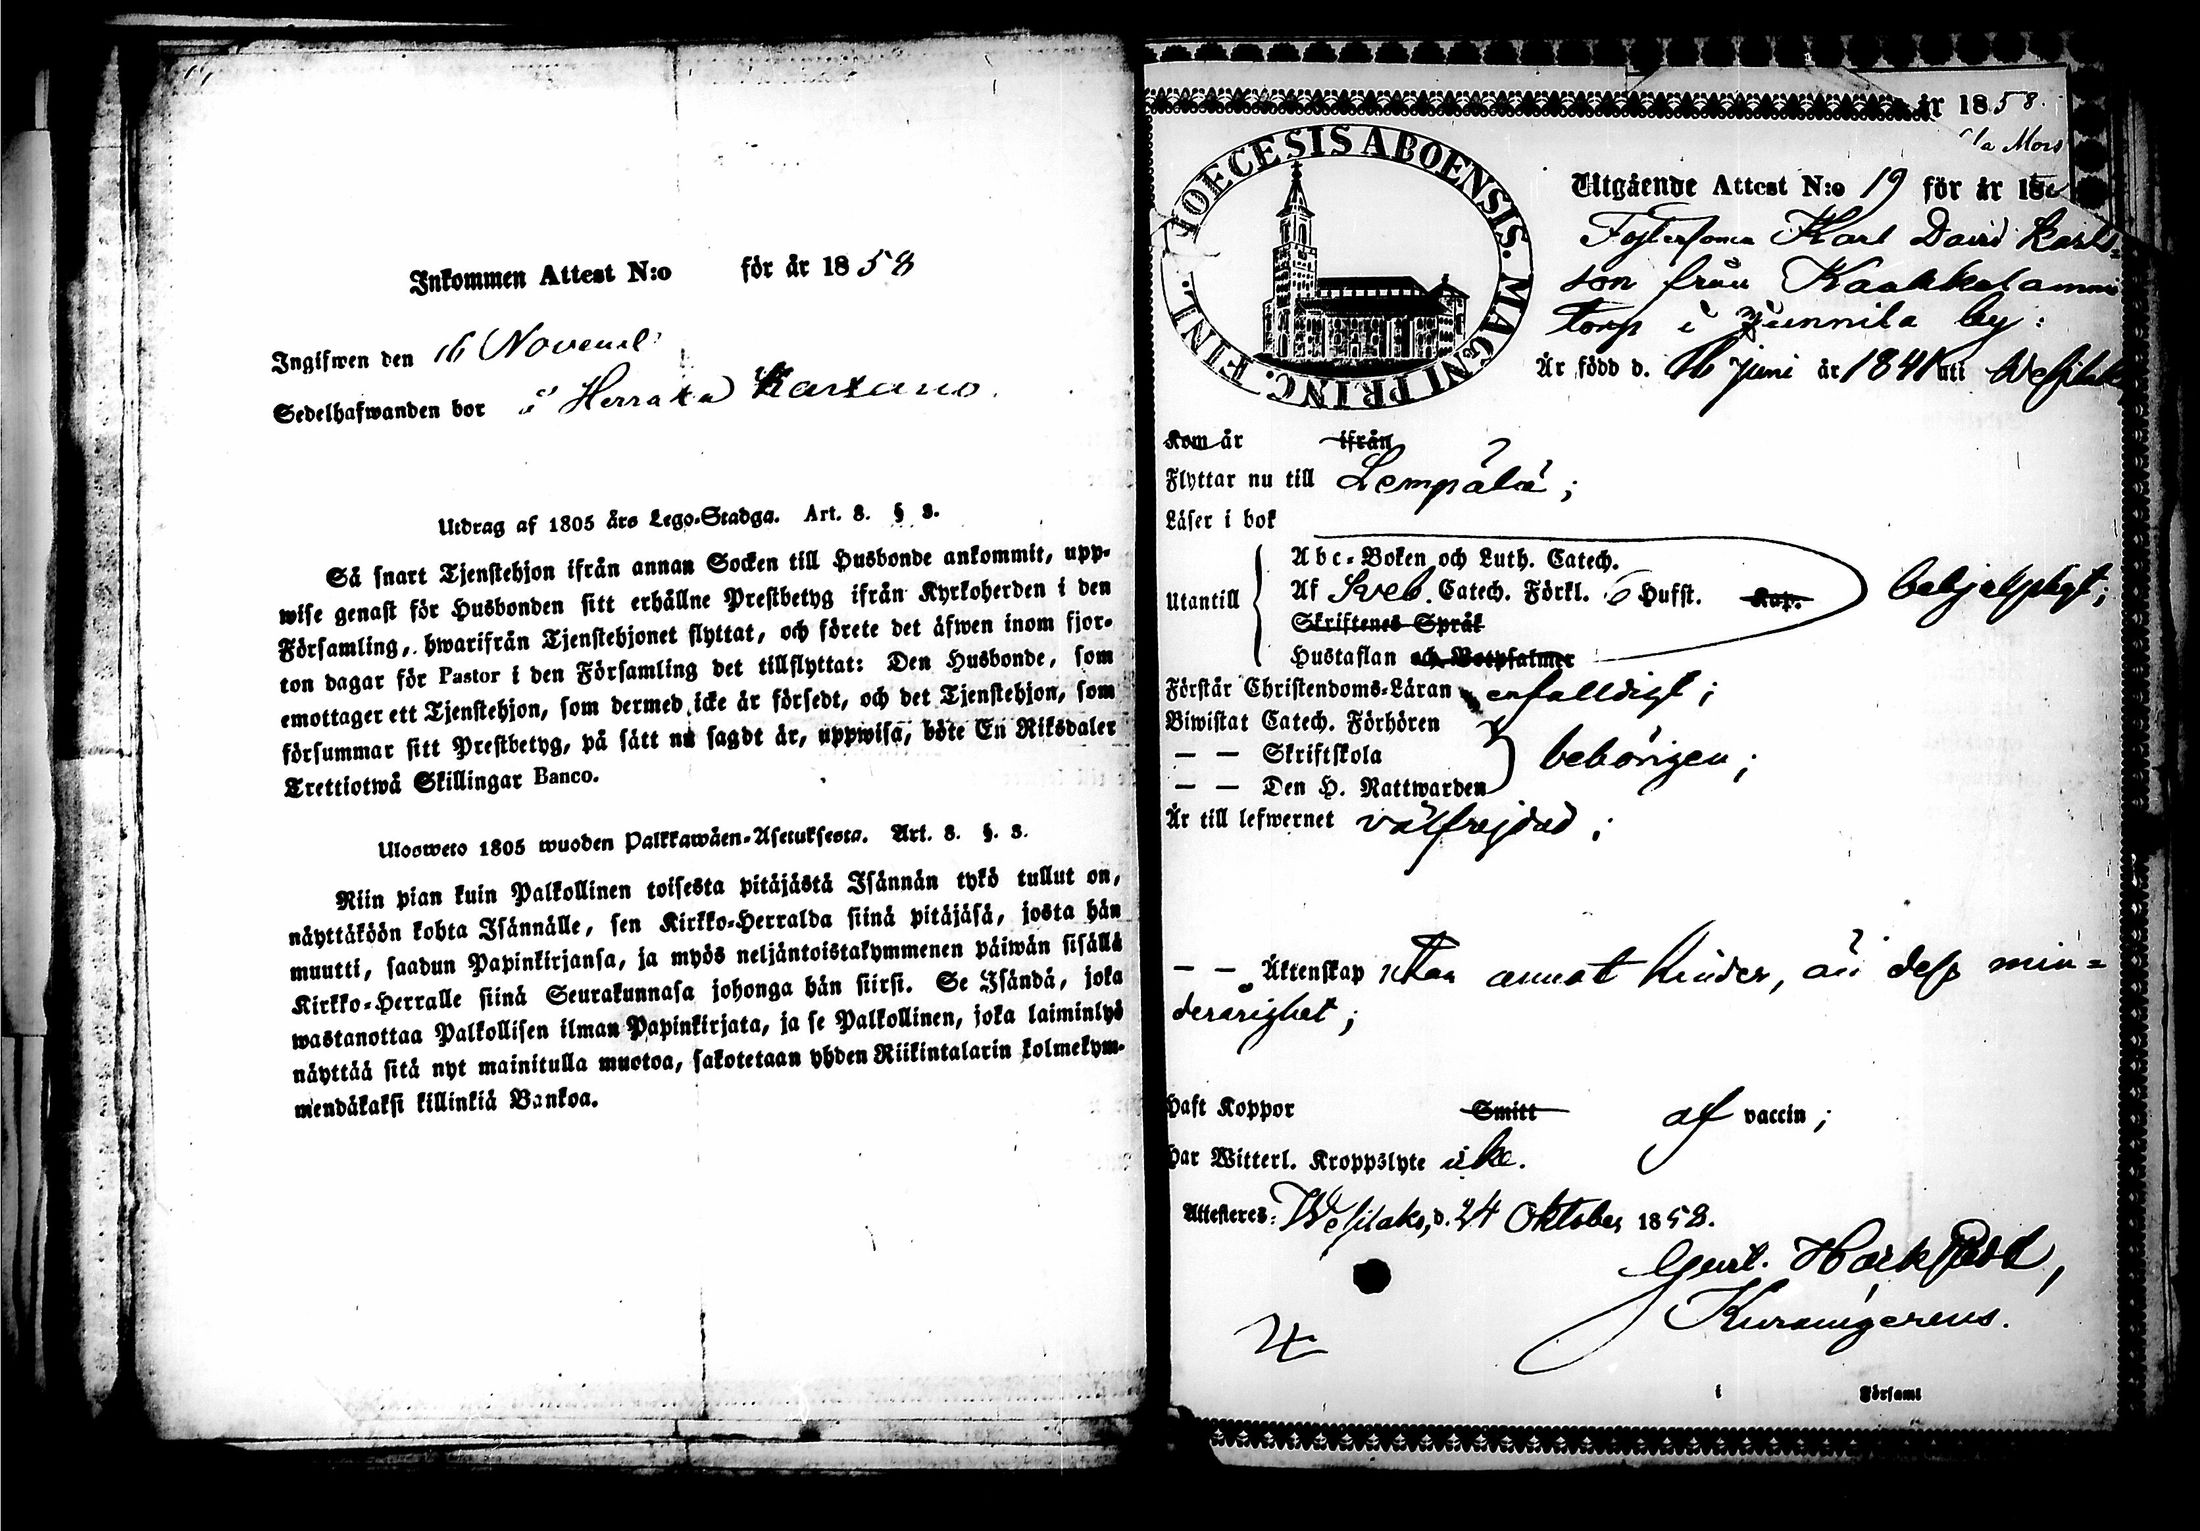 Inkommen Attest N:o för år 1858
Ingifwen den 16 Novemb
Sedelhafwanden bor i Herrala
Utdrag af 1805 års Lego-Stadga. Art. 8. § 3.
Så snart Tjenstehjon ifrån annan Socken till Husbonde ankommit, upp-
wise genast för Husbonden sitt erhållne Prestbetyg ifrån Kyrkoherden i den
Församling, hwarifrån Tjenstehjonet flyttat, och förete det äfwen inom fjor-
ton dagar för Pastor i den Församling det tillflyttat: Den Husbonde, som
emottager ett Tjenstehjon, som dermed icke är försedt, och det Tjenstehjon, som
försummar sitt Prestbetyg, på sätt nu sagdt är, uppwisa, böte En Riksdaler
Trettiotwå Skillingar Banco.
Ulosweto 1805 wuoden Palkkawäen-Asetuksesta. Art. 8. §. 3.
Niin pian kuin Palkollinen toisesta pitäjästä Isännän tykö tullut on,
näyttäköön kohta Isännälle, sen Kirkko-Herralda siinä pitäjäsä, josta hän
muutti, saadun Papinkirjansa, ja myös neljäntoistakymmenen päiwän sisällä
Kirkko-Herralle siinä Seurakunnasa johonga hän siirsi. Se Isändä, joka
wastanottaa Palkollisen ilman Papinkirjata, ja se Palkollinen, joka laiminlyö
näyttää sitä nyt mainitulla muotoa, sakotetaan yhden Riikintalarin kolmekym-
mendäkaksi killinkiä Bankoa.
år 1858.
DIOECESIS ABOENSIS. MAGNI PRINC. FINL.
Utgående Attest N:o 19 för år 185
Fostersonen Karl David Karls-
son från Kaakkolammi
torp i Junnila by:
Är född d. 16 Juni år 1841 uti Wesilaks
Kom år ifrån
Flyttar nu till Lempälä;
Läser i bok
Utantill
Abc-Boken och Luth. Catech.
Af Sveb. Catech. Förkl. 6 Hufst. Kap.
Skriftenes Språk
Hustaflan och Botpsalmer
behjelpligt;
Förstår Christendoms-Läran enfalldigt;
Biwistat Catech. Förhören
— — Skriftskola
— — Den H. Nattwarden
behörigen;
Är till lefwernet välfrejdad;
— — Äktenskap utan annat hinder, än dess min-
derårighet;
Haft Koppor Smitt af vaccin;
Har Witterl. Kroppslyte icke.
Attesteres: Wesilaks, d. 24 Oktober 1858.
Gust.
i Församl